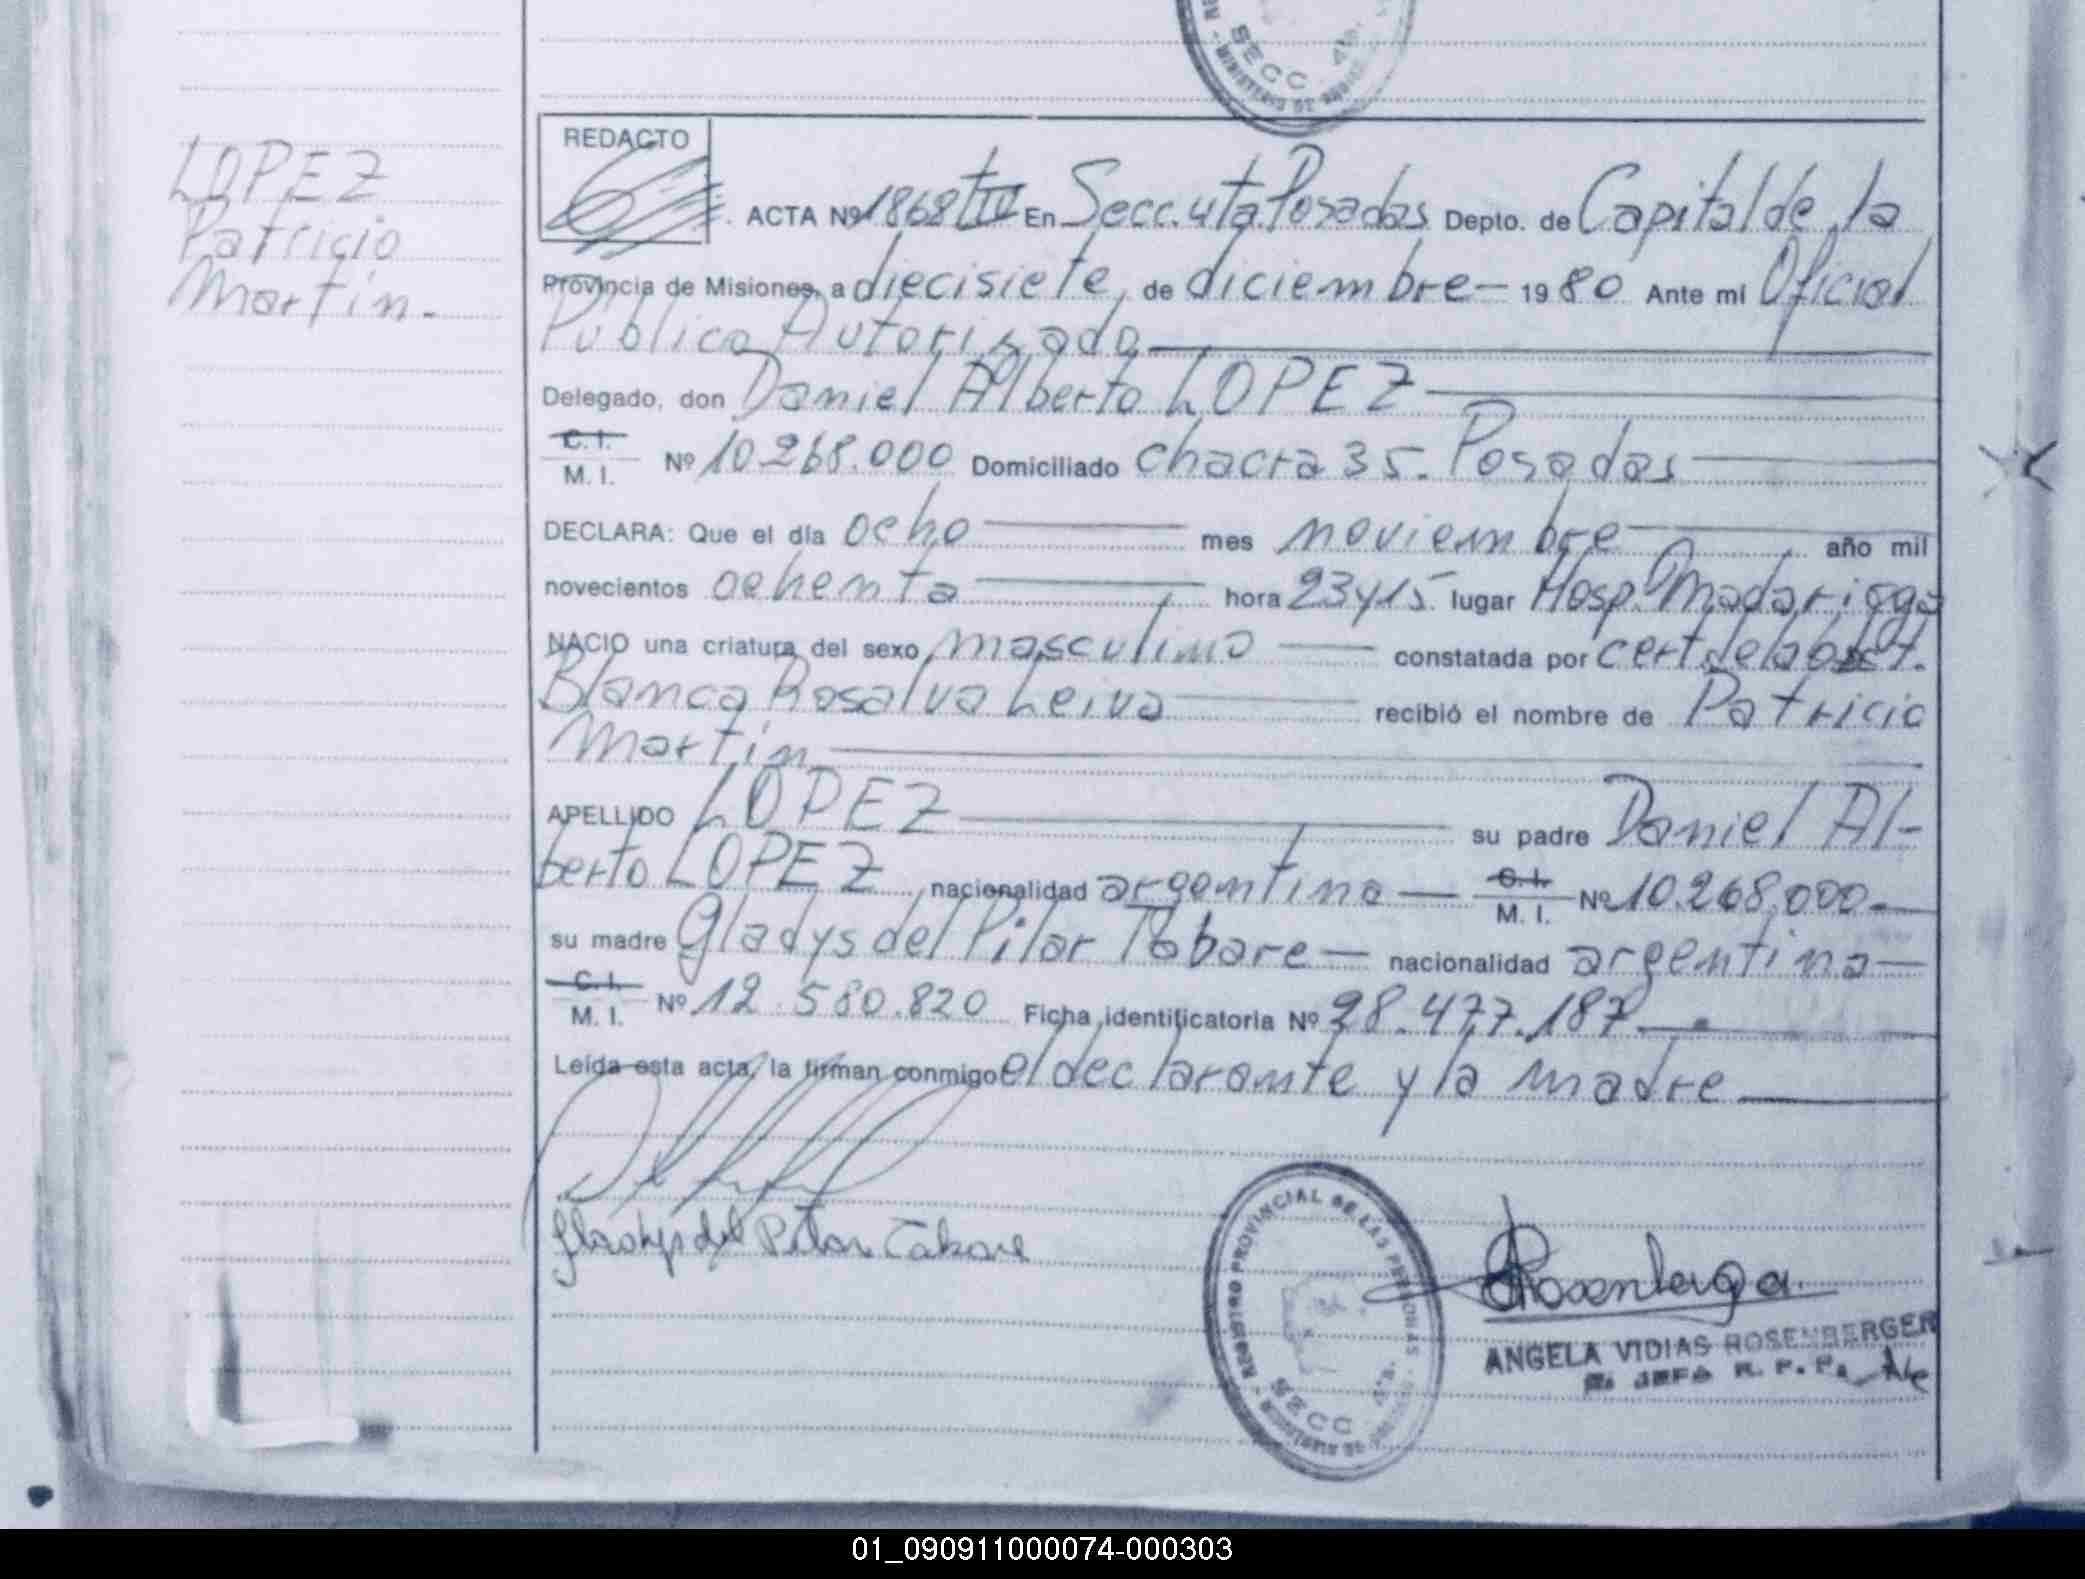 SECC 4ta.
MINISTERIO DE
LOPEZ
Patricio
Martin.-
REDACTO
ACTA Nº 1868 tIV En Secc. 4ta. Posadas Depto. de Capital de la
Provincia de Misiones, a diecisiete, de diciembre - 1980 Ante mi Oficial
Pública Autorizada
Delegado, don Daniel Alberto LOPEZ
C. I.
M. I. Nº 10.268.000 Domiciliado chacra 35. Posadas
DECLARA: Que el día ocho mes noviembre año mil
novecientos ochenta hora 23 y 15 lugar Hosp. Madariaga
NACIO una criatura del sexo masculino constatada por cert. de la obst.
Blanca Rosalva Leiva recibió el nombre de Patricio
Martín
APELLIDO LOPEZ su padre Daniel Al-
berto LOPEZ nacionalidad argentina C. I.
M. I. Nº 10.268.000-
su madre Gladys del Pilar Tabare - nacionalidad argentina -
C. I.
M. I. Nº 12.580.820 Ficha identificatoria Nº 28.477.187
Leída esta acta, la firman conmigo el declarante y la madre
Gladys del Pilar Tabare
REGISTRO PROVINCIAL DE LAS PERSONAS
SECC 4ta.
Rosenberger
ANGELA VIDIAS ROSENBERGER
JEFA R. P. P.
01_090911000074-000303